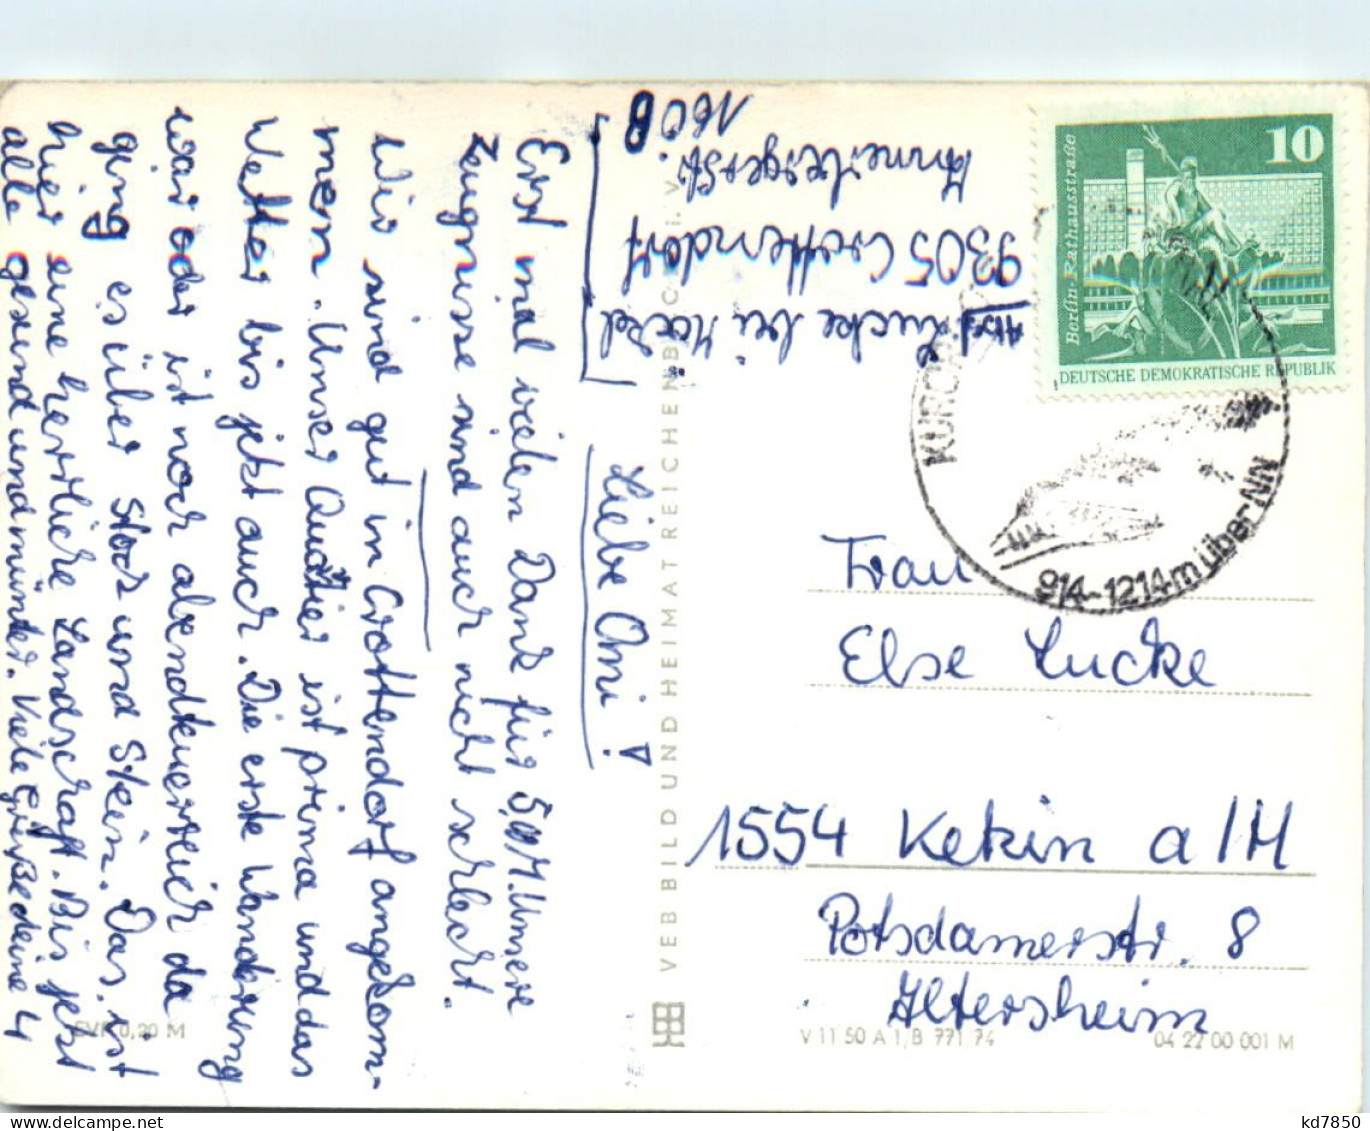 Abs. Lucke bei Hackel
9305 Crottendorf
Annabergerstr.
160B
Liebe Omi!
Erst mal vielen Dank für 5,00M. Unsere
Zeugnisse sind auch nicht schlecht.
Wir sind gut in Crottendorf angekom-
men. Unser Quatier ist prima und das
Wetter bis jetzt auch. Die erste Wanderung
war oder ist noch abendteuerlich da
ging es über Stock und Stein. Das ist
hier eine herrliche Landschaft. Bis jetzt
alle gesund und munter. Viele Grüße deine 4
EVP 0,20 M
VEB BILD UND HEIMAT REICHENBACH i. V.
10
Berlin-Rathausstraße
DEUTSCHE DEMOKRATISCHE REPUBLIK
KURORT
914-1214m über NN
Frau
Else Lucke
1554 Ketzin a/H
Potsdamerstr. 8
Altersheim
V 11 50 A 1, B 771/74
04 22 00 001 M
kd7850